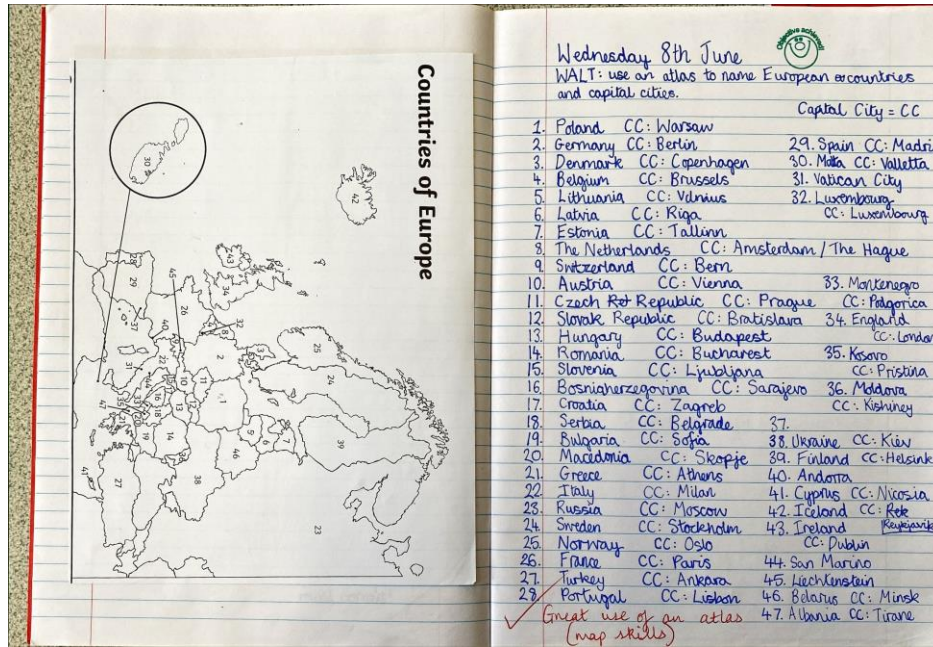 Countries of Europe
Objective achieved!
Wednesday 8th June
WALT: use an atlas to name European countries
and capital cities.
Capital City = CC
1. Poland CC: Warsaw
2. Germany CC: Berlin
3. Denmark CC: Copenhagen
4. Belgium CC: Brussels
5. Lithuania CC: Vilnius
6. Latvia CC: Riga
7. Estonia CC: Tallinn
8. The Netherlands CC: Amsterdam / The Hague
9. Switzerland CC: Bern
10. Austria CC: Vienna
11. Czech Republic CC: Prague
12. Slovak Republic CC: Bratislava
13. Hungary CC: Budapest
14. Romania CC: Bucharest
15. Slovenia CC: Ljubljana
16. Bosniaherzegovina CC: Sarajevo
17. Croatia CC: Zagreb
18. Serbia CC: Belgrade
19. Bulgaria CC: Sofia
20. Macedonia CC: Skopje
21. Greece CC: Athens
22. Italy CC: Milan
23. Russia CC: Moscow
24. Sweden CC: Stockholm
25. Norway CC: Oslo
26. France CC: Paris
27. Turkey CC: Ankara
28. Portugal CC: Lisbon
29. Spain CC: Madri
30. Malta CC: Valletta
31. Vatican City
32. Luxembourg
CC: Luxembourg
33. Montenegro
CC: Podgorica
34. England
CC: London
35. Kosovo
CC: Pristina
36. Moldova
CC: Kishinev
37.
38. Ukraine CC: Kiev
39. Finland CC: Helsink
40. Andorra
41. Cyprus CC: Nicosia
42. Iceland CC:
Reykjavik
43. Ireland
CC: Dublin
44. San Marino
45. Liechtenstein
46. Belarus CC: Minsk
47. Albania CC: Tirane
Great use of an atlas
(map skills)